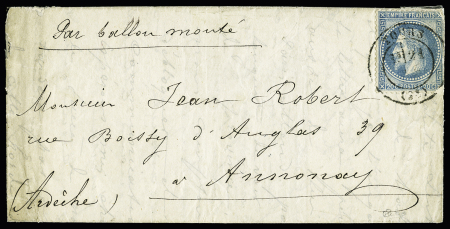 Par ballon monté
EMPIRE FRANÇAIS
Monsieur Jean Robert
rue Boissy d'Anglas 39
à Annonay
(Ardèche)